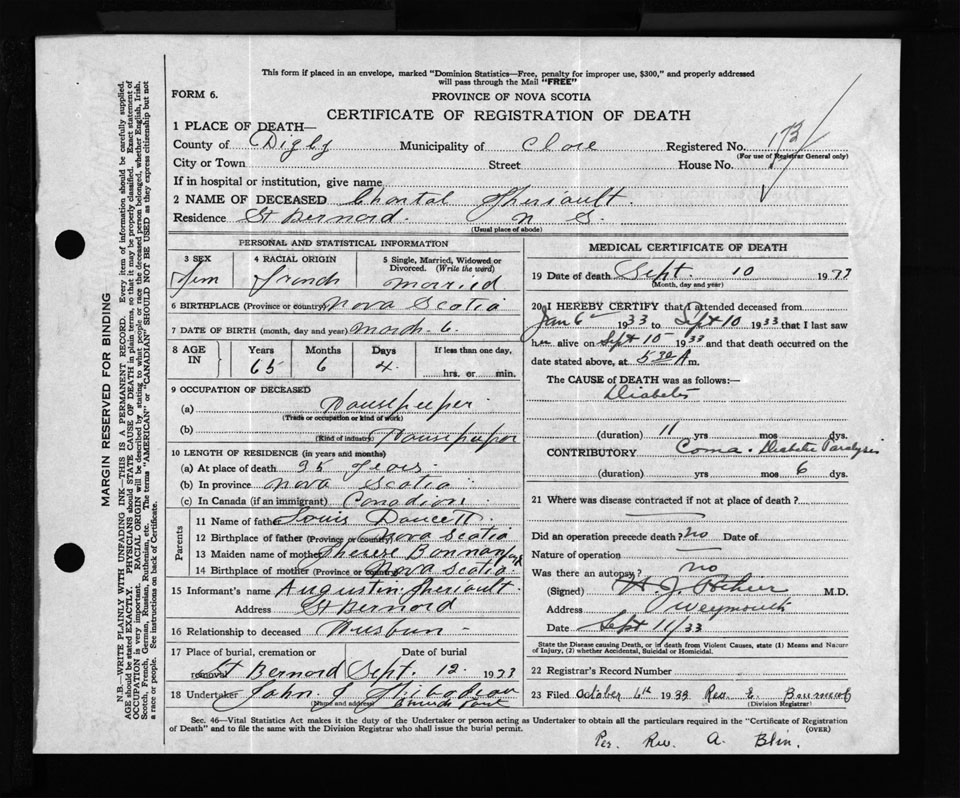 This form if placed in an envelope, marked "Dominion Statistics—Free, penalty for improper use, $300," and properly addressed
will pass through the Mail "FREE"
FORM 6.
PROVINCE OF NOVA SCOTIA
CERTIFICATE OF REGISTRATION OF DEATH
1 PLACE OF DEATH—
County of Digby Municipality of Clare Registered No. 173
(For use of Registrar General only)
City or Town Street House No.
If in hospital or institution, give name
2 NAME OF DECEASED Chantal Theriault.
Residence St Bernard. N S.
(Usual place of abode)
PERSONAL AND STATISTICAL INFORMATION
3 SEX 4 RACIAL ORIGIN 5 Single, Married, Widowed or
Divorced. (Write the word)
Fem French Married
6 BIRTHPLACE (Province or country) Nova Scotia
7 DATE OF BIRTH (month, day and year) March 6.
8 AGE IN Years Months Days If less than one day,
65 6 4. hrs. or min.
9 OCCUPATION OF DECEASED
(a) Housekeeper
(Trade or occupation or kind of work)
(b) Housekeeper
(Kind of industry)
10 LENGTH OF RESIDENCE (in years and months)
(a) At place of death 35 years
(b) In province Nova Scotia
(c) In Canada (if an immigrant) Canadian.
Parents
11 Name of father Louis Doucett
12 Birthplace of father (Province or country) Nova Scotia
13 Maiden name of mother Therese
14 Birthplace of mother (Province or country) Nova Scotia
15 Informant's name Augustin Theriault
Address St Bernard
16 Relationship to deceased Husban
17 Place of burial, cremation or removal Date of burial
St Bernard Sept. 12. 1933
18 Undertaker John J Thibodeau
(Name and address) Church Point
MEDICAL CERTIFICATE OF DEATH
19 Date of death Sept. 10 1933
(Month, day and year)
20 I HEREBY CERTIFY that I attended deceased from
Jan 6 1933 to Sept 10 1933 that I last saw
her alive on Sept 10 1933 and that death occurred on the
date stated above, at 5 30 A m.
The CAUSE of DEATH was as follows:—
Diabetes
(duration) 11 yrs mos dys.
CONTRIBUTORY Coma. Diabetic Paralysis
(duration) yrs mos 6 dys.
21 Where was disease contracted if not at place of death?
Did an operation precede death? no Date of
Nature of operation
Was there an autopsy? no
(Signed) M.D.
Address Weymouth
Date Sept 11/33
State the Disease causing Death, or in death from Violent Causes, state (1) Means and Nature
of Injury, (2) whether Accidental, Suicidal or Homicidal.
22 Registrar's Record Number
23 Filed October 4th 1933 Rev. E.
(Division Registrar)
Sec. 46—Vital Statistics Act makes it the duty of the Undertaker or person acting as Undertaker to obtain all the particulars required in the "Certificate of Registration
of Death" and to file the same with the Division Registrar who shall issue the burial permit. (OVER)
Per. Rev. A. Blin.
MARGIN RESERVED FOR BINDING
N.B.—WRITE PLAINLY WITH UNFADING INK—THIS IS A PERMANENT RECORD. Every item of information should be carefully supplied.
AGE should be stated EXACTLY. PHYSICIANS should STATE CAUSE OF DEATH in plain terms, so that it may be properly classified. Exact statement of
OCCUPATION is very important. RACIAL ORIGIN will be described by stating to what people or race the deceased person belonged, whether English, Irish,
Scotch, French, German, Russian, Ruthenian, etc. The terms "AMERICAN" or "CANADIAN" SHOULD NOT BE USED as they express citizenship but not
a race or people. See instructions on back of Certificate.